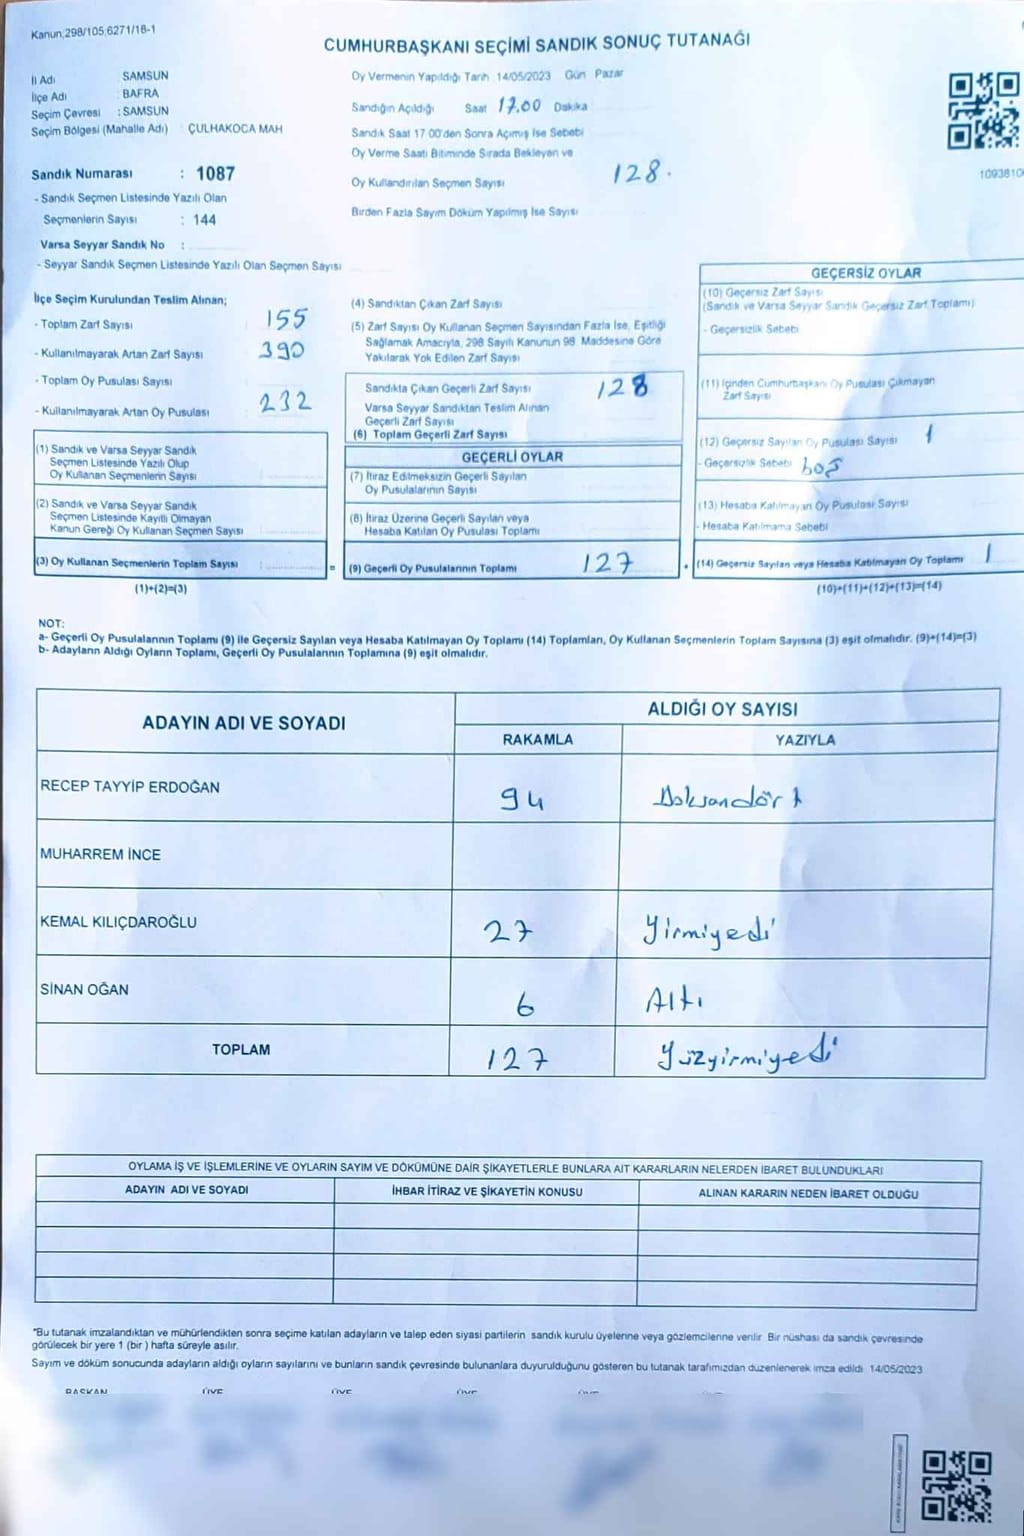 Kanun,298/105,6271/18-1
CUMHURBAŞKANI SEÇİMİ SANDIK SONUÇ TUTANAĞI
İl Adı SAMSUN
İlçe Adı : BAFRA
Seçim Çevresi : SAMSUN
Seçim Bölgesi (Mahalle Adı) : ÇULHAKOCA MAH
Sandık Numarası : 1087
- Sandık Seçmen Listesinde Yazılı Olan
Seçmenlerin Sayısı : 144
Varsa Seyyar Sandık No :
- Seyyar Sandık Seçmen Listesinde Yazılı Olan Seçmen Sayısı
Oy Vermenin Yapıldığı Tarih 14/05/2023 Gün Pazar
Sandığın Açıldığı Saat 17.00 Dakika
Sandık Saat 17 00'den Sonra Açımış İse Sebebi
Oy Verme Saati Bitiminde Sırada Bekleyen ve
Oy Kullandırılan Seçmen Sayısı 128.
Birden Fazla Sayım Döküm Yapılmış İse Sayısı
1093810
İlçe Seçim Kurulundan Teslim Alınan;
- Toplam Zarf Sayısı 155
- Kullanılmayarak Artan Zarf Sayısı 390
- Toplam Oy Pusulası Sayısı
- Kullanılmayarak Artan Oy Pusulası 232
(1) Sandık ve Varsa Seyyar Sandık
Seçmen Listesinde Yazılı Olup
Oy Kullanan Seçmenlerin Sayısı
(2) Sandık ve Varsa Seyyar Sandık
Seçmen Listesinde Kayıtlı Olmayan
Kanun Gereği Oy Kullanan Seçmen Sayısı
(3) Oy Kullanan Seçmenlerin Toplam Sayısı : =
(1)+(2)=(3)
(4) Sandıktan Çıkan Zarf Sayısı
(5) Zarf Sayısı Oy Kullanan Seçmen Sayısından Fazla İse, Eşitliği
Sağlamak Amacıyla, 298 Sayılı Kanunun 98 Maddesine Göre
Yakılarak Yok Edilen Zarf Sayısı
Sandıkta Çıkan Geçerli Zarf Sayısı 128
Varsa Seyyar Sandıktan Teslim Alınan
Geçerli Zarf Sayısı
(6) Toplam Geçerli Zarf Sayısı
GEÇERLİ OYLAR
(7) İtiraz Edilmeksizin Geçerli Sayılan
Oy Pusulalarının Sayısı
(8) İtiraz Üzerine Geçerli Sayılan veya
Hesaba Katılan Oy Pusulası Toplamı
(9) Geçerli Oy Pusulalarının Toplamı 127
GEÇERSİZ OYLAR
(10) Geçersiz Zarf Sayısı
(Sandık ve Varsa Seyyar Sandık Geçersiz Zarf Toplamı)
- Geçersizlik Sebebi
(11) İçinden Cumhurbaşkanı Oy Pusulası Çıkmayan
Zarf Sayısı
(12) Geçersiz Sayılan Oy Pusulası Sayısı 1
- Geçersizlik Sebebi boş
(13) Hesaba Katılmayan Oy Pusulası Sayısı
- Hesaba Katılmama Sebebi
(14) Geçersiz Sayılan veya Hesaba Katılmayan Oy Toplamı 1
(10)+(11)+(12)+(13)=(14)
NOT:
a- Geçerli Oy Pusulalarının Toplamı (9) ile Geçersiz Sayılan veya Hesaba Katılmayan Oy Toplamı (14) Toplamları, Oy Kullanan Seçmenlerin Toplam Sayısına (3) eşit olmalıdır. (9)+(14)=(3)
b- Adayların Aldığı Oyların Toplamı, Geçerli Oy Pusulalarının Toplamına (9) eşit olmalıdır.
ADAYIN ADI VE SOYADI ALDIĞI OY SAYISI
RAKAMLA YAZIYLA
RECEP TAYYİP ERDOĞAN 94 Doksandört
MUHARREM İNCE
KEMAL KILIÇDAROĞLU 27 Yirmiyedi
SİNAN OĞAN 6 Altı
TOPLAM 127 Yüzyirmiyedi
OYLAMA İŞ VE İŞLEMLERİNE VE OYLARIN SAYIM VE DÖKÜMÜNE DAİR ŞİKAYETLERLE BUNLARA AİT KARARLARIN NELERDEN İBARET BULUNDUKLARI
ADAYIN ADI VE SOYADI İHBAR İTİRAZ VE ŞİKAYETİN KONUSU ALINAN KARARIN NEDEN İBARET OLDUĞU
*Bu tutanak imzalandıktan ve mühürlendikten sonra seçime katılan adayların ve talep eden siyasi partilerin sandık kurulu üyelerine veya gözlemcilerine verilir Bir nüshası da sandık çevresinde
görülecek bir yere 1 (bir) hafta süreyle asılır.
Sayım ve döküm sonucunda adayların aldığı oyların sayılarını ve bunların sandık çevresinde bulunanlara duyurulduğunu gösteren bu tutanak tarafımızdan düzenlenerek imza edildi 14/05/2023
BAŞKAN ÜYE ÜYE ÜYE ÜYE ÜYE